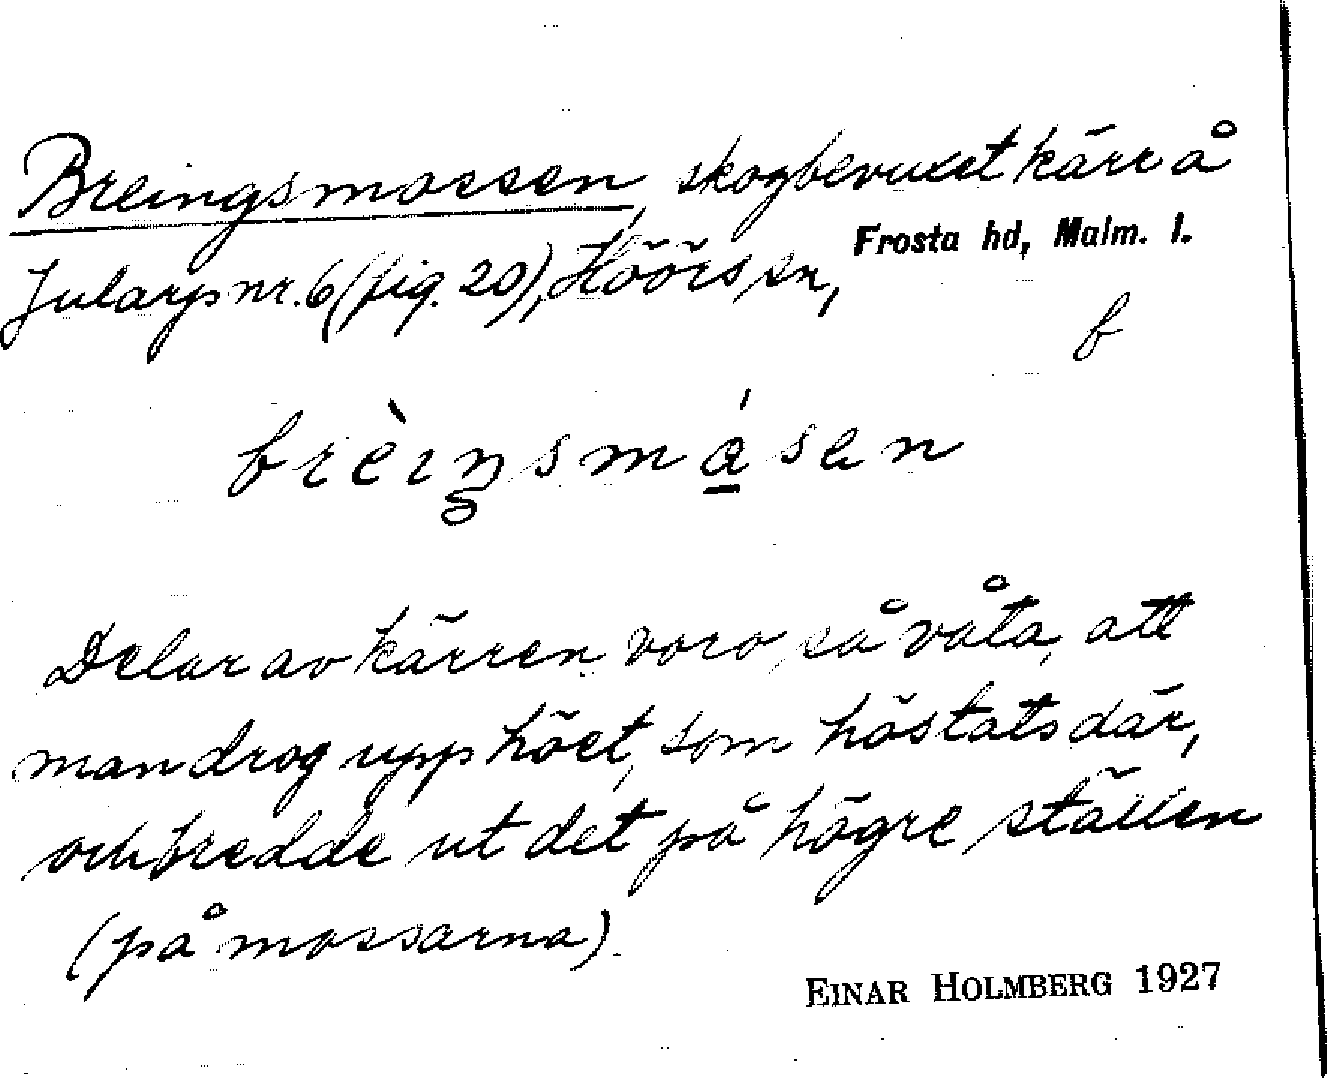 Breingsmossen, skogbevuxet kärr å
Jularp nr. 6 (fig. 20), Höörs sn,
Frosta hd, Malm. l.
b
brèıŋsmá̱sen
Delar av kärren voro så våta, att
man drog upp höet, som höstats där,
och bredde ut det på högre ställen
(på mossarna).
EINAR HOLMBERG 1927